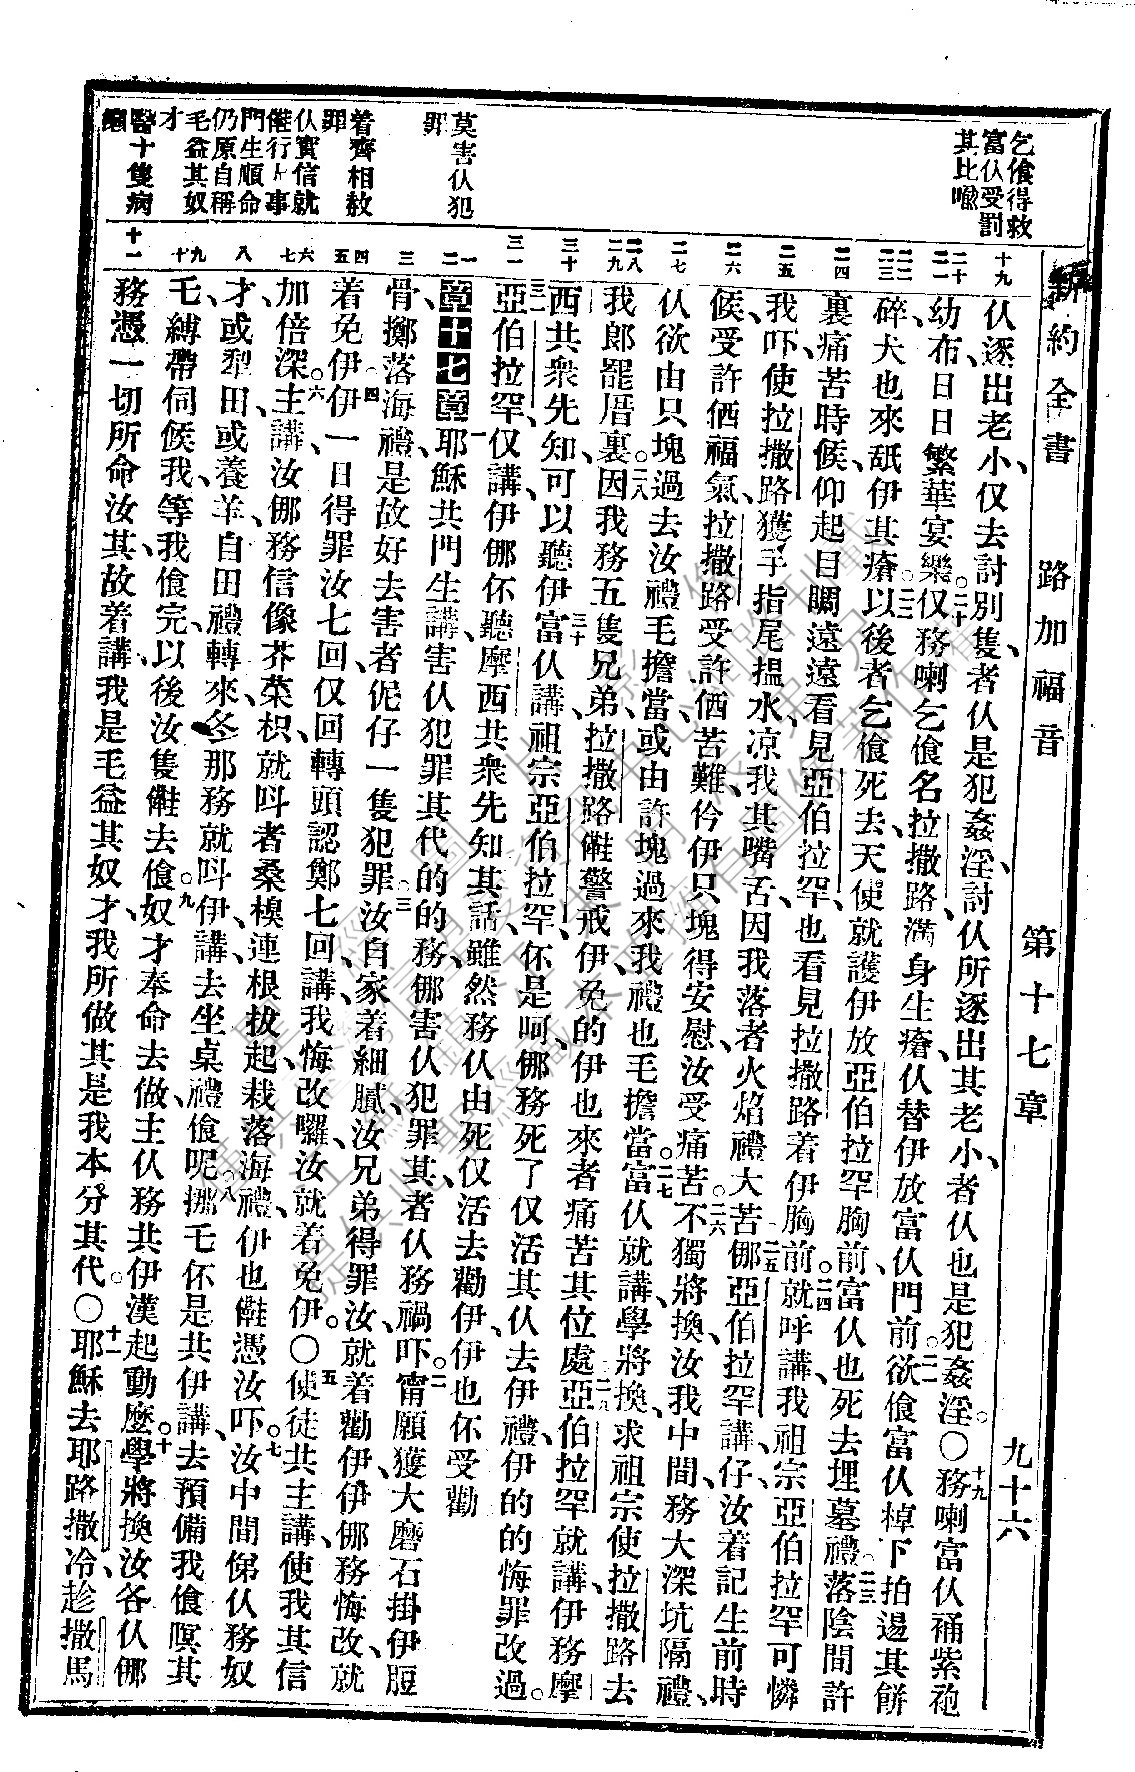 新約全書 路加福音 第十七章 九十六
乞飡得救
富仈受罰
其比喩
莫害仈犯
罪
着齊相赦
罪
仈實信就
能行事
門生順命
仍原自稱
毛益其奴
才
醫十隻病
十九
仈逐出老小、仅去討別隻者仈是犯姦淫、討仈所逐出其老小者仈也是犯姦淫。〇十九務喇富仈𧙕紫袍
二十 二一
幼布日日繁華宴樂。二十仅務喇乞飡名拉撒路、滿身生瘡、仈替伊放富仈門前、二一欲飡富仈棹下拍逿其餅
二二 二三
碎、犬也來舐伊其瘡。二二以後者乞飡死去、天使就護伊放亞伯拉罕胸前。富仈也死去埋墓禮。二三落陰間許
二四
裏痛苦時候、仰起目睭遠遠看見亞伯拉罕、也看見拉撒路着伊胸前。二四就呼講、我祖宗亞伯拉罕、可憐
二五
我吓、使拉撒路獲手指尾揾水、凉我其嘴舌、因我落者火焰禮大苦。二五㑚亞伯拉罕講、仔、汝着記生前時
二六
候、受許価福氣、拉撒路受許価苦難、仱伊只塊得安慰、汝受痛苦。二六不獨將換、汝我中間務大深坑隔禮、
二七
仈欲由只塊過去汝禮毛擔當、或由許塊過來我禮也毛擔當。二七富仈就講、學將換、求祖宗使拉撒路去
二八 二九
我郎罷厝裏。二八因我務五隻兄弟、拉撒路㑚警戒伊、免的伊也來者痛苦其位處。二九亞伯拉罕就講、伊務摩
三十
西共衆先知、可以聽伊。三十富仈講、祖宗亞伯拉罕、伓是呵、㑚務死了仅活其仈去伊禮、伊的的悔罪改過。
三一
三一亞伯拉罕仅講、伊㑚伓聽摩西共衆先知其話、雖然務仈由死仅活去勸伊、伊也伓受勸
一 二
章十七第 一耶穌共門生講、害仈犯罪其代的的務、㑚害仈犯罪其者仈務禍吓。二甯願獲大磨石掛伊脰
三
骨、擲落海禮、是故好去害者伲仔一隻犯罪。三汝自家着細膩、汝兄弟得罪汝、就着勸伊、伊㑚務悔改、就
四 五
着免伊。四伊一日得罪汝七回、仅回轉頭認鄭七回、講、我悔改囉、汝就着免伊。〇五使徒共主講、使我其信
六 七
加倍深。六主講、汝㑚務信像芥菜枳、就呌者桑樹、連根拔起栽落海禮、伊也能憑汝吓。七汝中間俤仈務奴
八
才、或犁田、或養羊、自田禮轉來、那務就呌伊講、去坐桌禮飡呢。八挪毛伓是共伊講、去預備我飡暝其
九 十
毛、縛帶伺候我、等我飡完、以後汝隻能去飡。九奴才奉命去做、主仈務共伊漢起動麽。十學將換、汝各仈㑚
十一
務憑一切所命汝其、故着講、我是毛益其奴才、我所做其是我本分其代。〇十一耶穌去耶路撒冷、趁撒馬